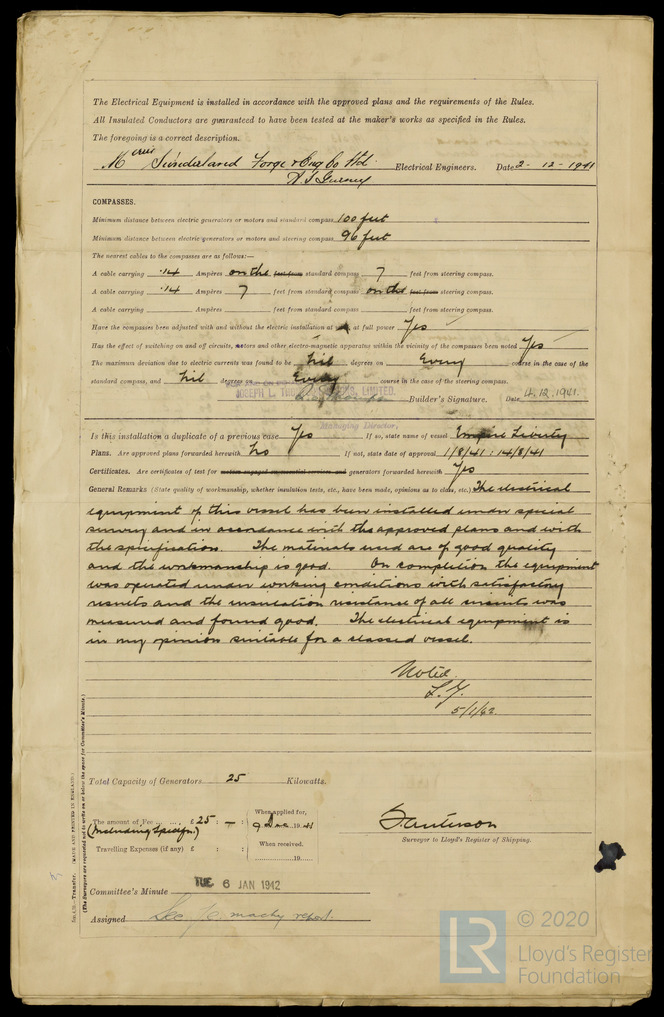 The Electrical Equipment is installed in accordance with the approved plans and the requirements of the Rules.
All Insulated Conductors are guaranteed to have been tested at the maker's works as specified in the Rules.
The foregoing is a correct description.
Sunderland Forge & Eng Co Ltd. Electrical Engineers. Date 2-12-1941
COMPASSES.
Minimum distance between electric generators or motors and standard compass 100 feet
Minimum distance between electric generators or motors and steering compass 96 feet
The nearest cables to the compasses are as follows:—
A cable carrying .14 Ampères on the feet from standard compass 7 feet from steering compass.
A cable carrying .14 Ampères 7 feet from standard compass on the feet from steering compass.
A cable carrying Ampères feet from standard compass feet from steering compass.
Have the compasses been adjusted with and without the electric installation at work at full power Yes
Has the effect of switching on and off circuits, motors and other electro-magnetic apparatus within the vicinity of the compasses been noted Yes
The maximum deviation due to electric currents was found to be Nil degrees on Every course in the case of the
standard compass, and Nil degrees on Every course in the case of the steering compass.
JOSEPH L. LIMITED.
Builder's Signature. Date 4.12.1941.
Managing Director,
Is this installation a duplicate of a previous case Yes If so, state name of vessel Empire Liberty
Plans. Are approved plans forwarded herewith No If not, state date of approval 1/8/41 : 14/8/41
Certificates. Are certificates of test for generators forwarded herewith Yes
General Remarks (State quality of workmanship, whether insulation tests, etc., have been made, opinions as to class, etc.) The electrical
equipment of this vessel has been installed under special
survey and in accordance with the approved plans and with
the specification. The materials used are of good quality
and the workmanship is good. On completion the equipment
was operated under working conditions with satisfactory
results and the insulation resistance of all circuits was
measured and found good. The electrical equipment is
in my opinion suitable for a classed vessel.
Noted
5/1/42
Total Capacity of Generators 25 Kilowatts.
The amount of Fee ... ... £ 25 : — : When applied for,
(Including Specifn.) 9 Dec 1941
Travelling Expenses (if any) £ : : When received.
19
Surveyor to Lloyd's Register of Shipping.
Committee's Minute TUE 6 JAN 1942
Assigned See machy report.
Transfer. (MADE AND PRINTED IN ENGLAND.)
(The Surveyors are requested not to write on or below the space for Committee's Minute.)
LR
© 2020
Lloyd's Register
Foundation